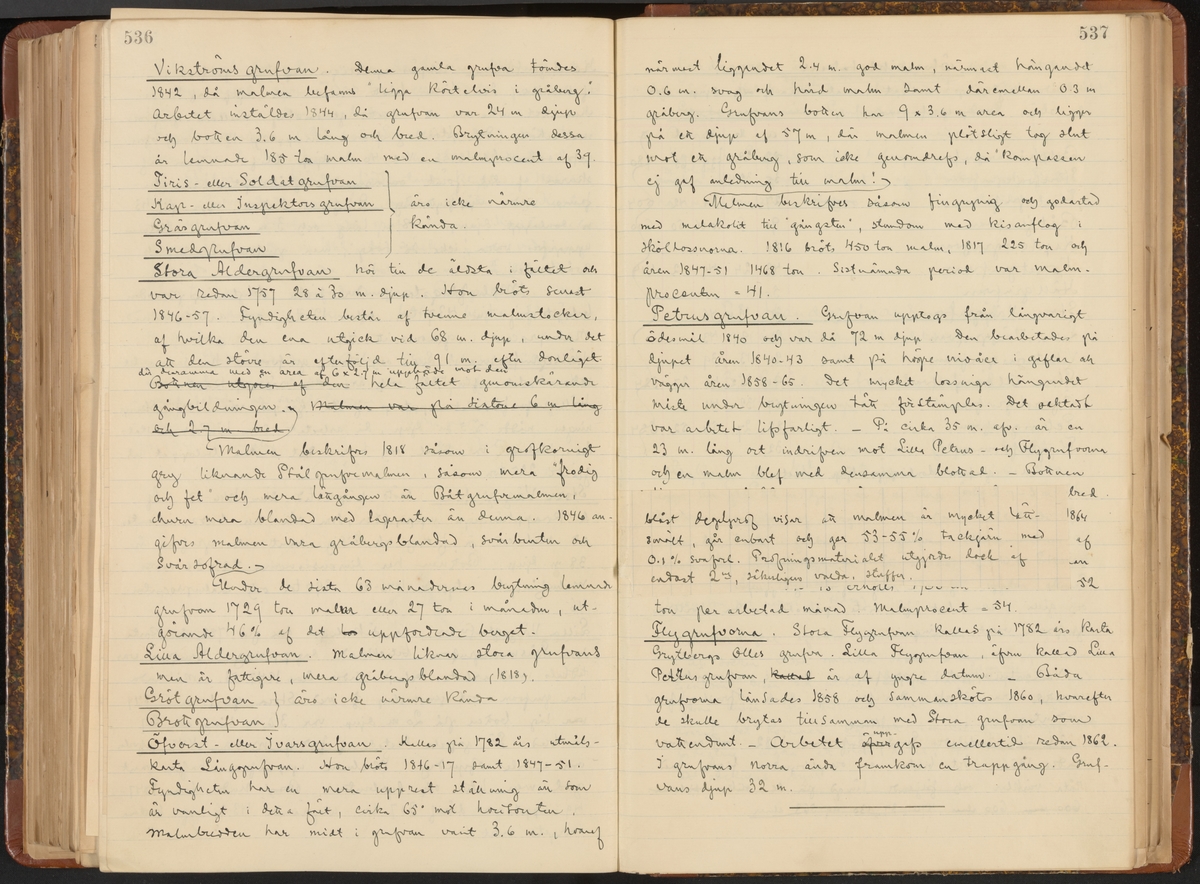 536
Vikströms grufvan. Denna gamla grufva töndes
1842, då malmen befanns "ligga körtelvis i gråberg".
Arbetet instäldes 1844, då grufvan var 24 m djup
och botten 3.6 m lång och bred. Brytningen dessa
år lemnade 185 ton malm med en malmprocent af 39.
Tiris- eller Soldatgrufvan
Kap- eller Inspektorsgrufvan
äro icke närmre
Gräsgrufvan
kända.
Smedgrufvan
Stora Aldergrufvan hör till de äldsta i fältet och
var redan 1757 28 à 30 m. djup. Hon bröts senast
1846-57. Fyndigheten består af tvenne malmstockar,
af hvilka den ena utgick vid 68 m. djup, under det
att den större är efterföljd till 91 m. efter donläget
då densamma med en area af 6 x 2.7 m upphörde mot den
Bottnen utgöres af den hela fältet genomskärande
gångbildningen. Malmen var på sistone 6 m lång
och 2.7 m bred.
Malmen beskrifves 1818 såsom i grofkornigt
gry liknande Stålgrufvemalmen, såsom mera "frodig
och fet" och mera lättgången än Båtgrufvemalmen,
churu mera blandad med lagerarter än denna. 1846 an-
gifves malmen vara gråbergsblandad, svårbruten och
svårsofrad.
Under de sista 63 månadernes brytning lemnade
grufvan 1729 ton malm eller 27 ton i månaden, ut-
görande 46% af det uppfordrade berget.
Lilla Aldergrufvan. Malmen liknar stora grufvans
men är fattigare, mera gråbergsblandad (1818).
Grötgrufvan
äro icke närmre kända
Brottgrufvan
Öfverst- eller Ivarsgrufvan. Kallas på 1782 års utmåls-
karta Långgrufvan. Hon bröts 1816-17 samt 1847-51.
Fyndigheten har en mera upprest ställning än som
är vanligt i detta fält, cirka 65° mot horisonten.
Malmbredden har midt i grufvan varit 3.6 m., hvaraf
537
närmast liggandet 2.4 m. god malm, närmast hängandet
0.6 m. svag och hård malm samt däremellan 0.3 m
gråberg. Grufvans botten har 9 x 3.6 m area och ligger
på ett djup af 57 m, där malmen plötsligt tog slut
mot ett gråberg, som icke genomdrefs, då "kompassen
ej gaf anledning till malm".
Malmen beskrifves såsom fingrynig och godartad
med malakolit till "gångsten", stundom med kisanflog i
sköllossnorna. 1816 bröts 450 ton malm, 1817 225 ton och
åren 1847-51 1468 ton. Sistnämnda period var malm-
procenten = 41.
Petrusgrufvan. Grufvan upptogs från långvarigt
ödesmål 1840 och var då 72 m djup. Den bearbetades på
djupet åren 1840-43 samt på högre nivåer i gaflar och
väggar åren 1858-65. Det mycket lossniga hängandet
måste under brytningen tätt förstämplas. Det oaktadt
var arbetet lifsfarligt. - På cirka 35 m. afv. är en
23 m. lång ort indrifven mot Lilla Petrus- och Flygrufvorna
och en malm blef med densamma blottad. - Bottnen
bred.
blåst degelprof visar att malmen är mycket lätt-
1864
smält, går enbart och ger 53-55% tackjärn, med
af
0.1% svafvel. Profningsmaterialet utgjorde dock af
endast 2 , sannolikt valda, stuffer.
52
ton per arbetad månad. Malmprocent = 54.
Flygrufvorna. Stora Flygrufvan kallas på 1782 års karta
Grytbergs Olles grufva. Lilla Flygrufvan, äfven kallad Lilla
Petrusgrufvan, kallad är af yngre datum. - Båda
grufvorna länsades 1858 och sammanskötos 1860, hvarefter
de skulle brytas tillsamman med Stora grufvan som
vattendunt. - Arbetet uppgafs emellertid redan 1862.
I grufvans norra ända framkom en trappgång. Gruf-
vans djup 32 m.